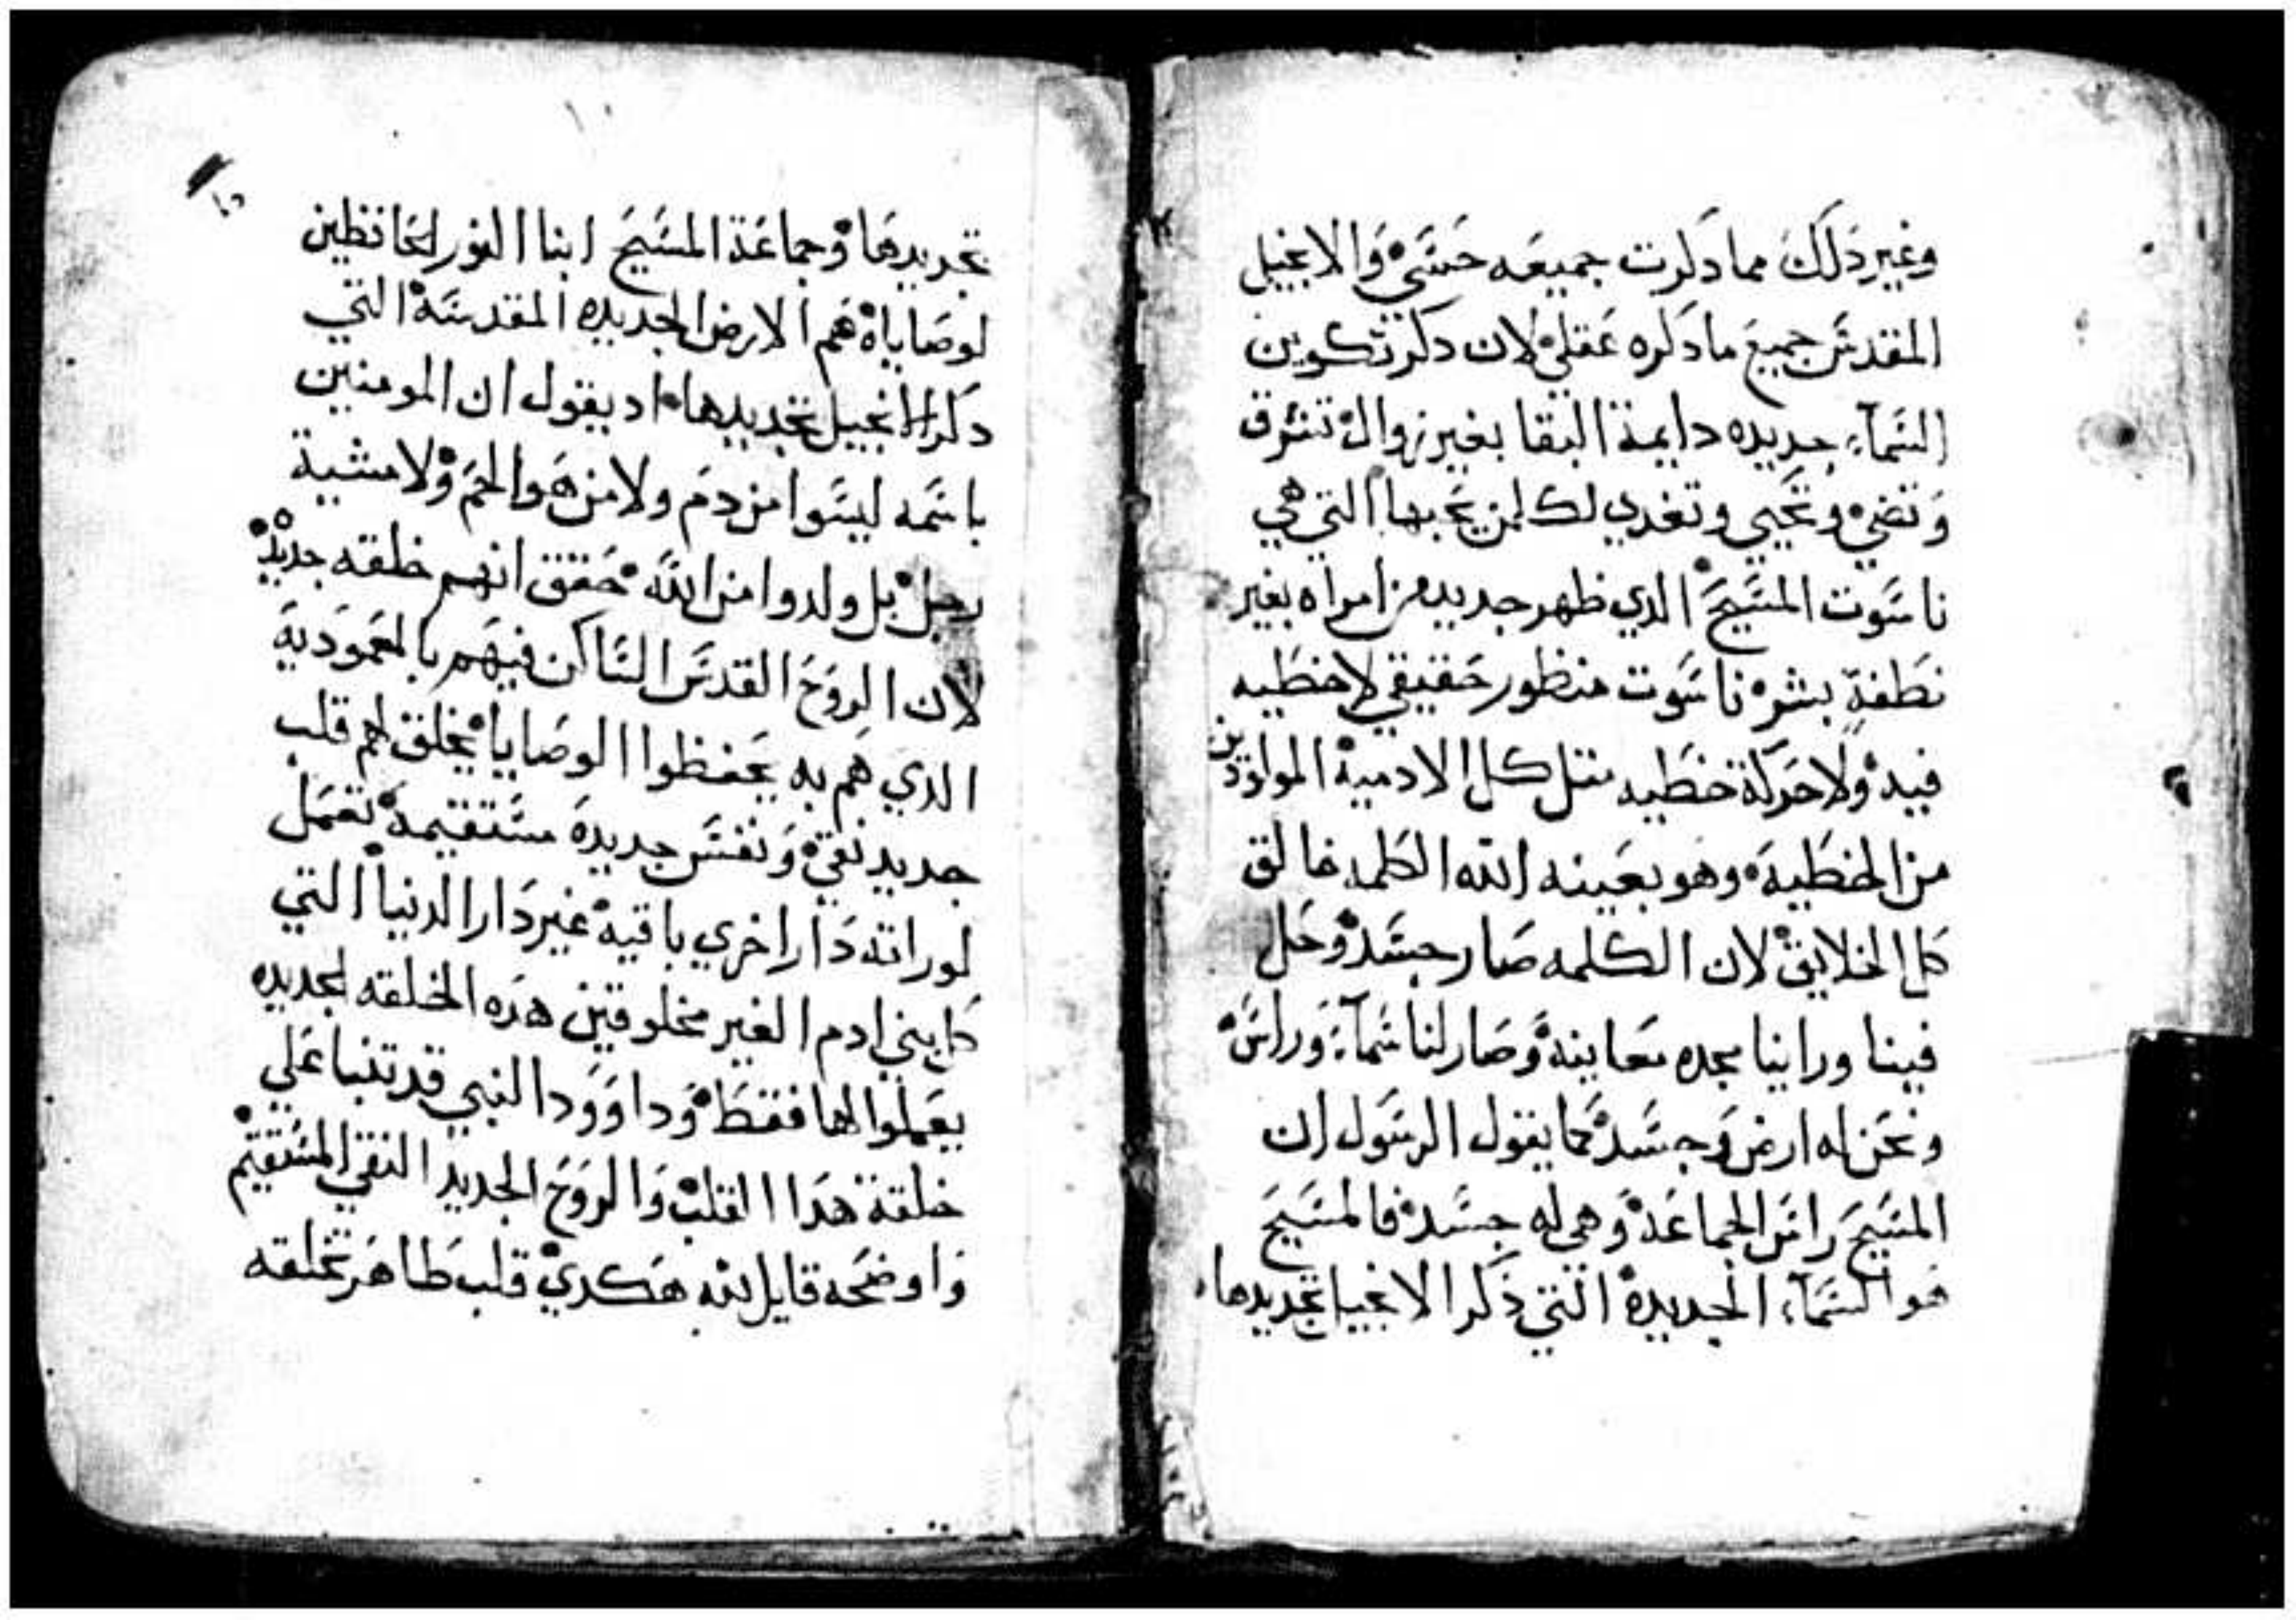 وغير ذلك مما دكرت جميعه حسي والانجيل
المقدس جميع ما دكره عقلي لان دكر تكوين
السمآء جديده دايمة البقا بغير زوال تشرق
وتضي وتحيي وتغدي لكلمن يحبها التي هي
ناسوت المسيح الدي ظهر جديد من امراه بغير
نطفة بشر ناسوت منظور حقيقي لا خطيه
فيه ولا حركة خطيه متل كل الادمية المولودين
من الخطية وهو بعينه الله الكلمه خالق
كل الخلايق لان الكلمه صار جسد وحل
فينا وراينا مجده معاينة وصار لنا سمآء وراس
ونحن له ارض وجسد كما يقول الرسول ان
المسيح راس الجماعة وهي له جسد فالمسيح
هو السمآء الجديدة التي ذكر الانجيل تجديدها
تجديدها وجماعة المسيح ابنا النور الحافظين
لوصاياه هم الارض الجديده المقدسة التي
دكر الانجيل تجديدها اد يقول ان المومنين
باسمه ليسوا من دم ولا من هوا لحم ولا مشية
رجل بل ولدوا من الله حقق انهم خلقه جديده
لان الروح القدس الساكن فيهم بالمعمودية
الدي هم به يحفظوا الوصايا يخلق لهم قلب
جديد نقي ونفس جديدة مستقيمة تعمل
لوراتة دار اخري باقية غير دار الدنيا التي
كل بني ادم الغير مخلوقين هذه الخلقه الجديده
يعملوا لها فقط وداوود النبي قد تنبا علي
خلقة هدا القلب والروح الجديد النقي المستقيم
واوضحه قايل لله هكدي قلب طاهر تخلقه